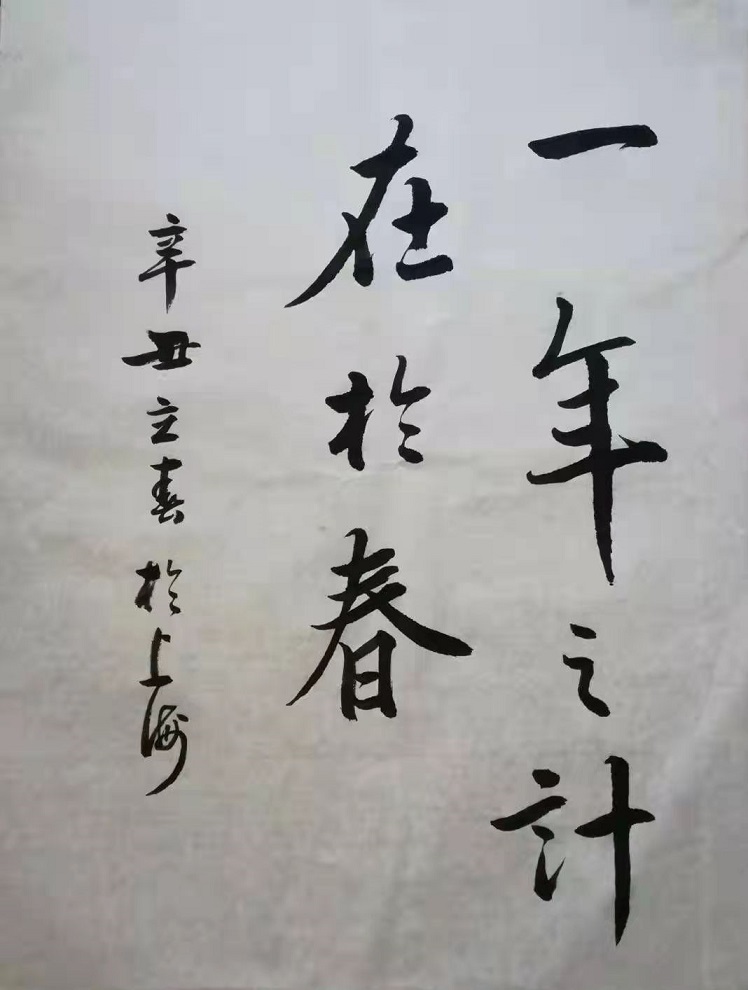 一年之計
在於春
辛丑立春於上海